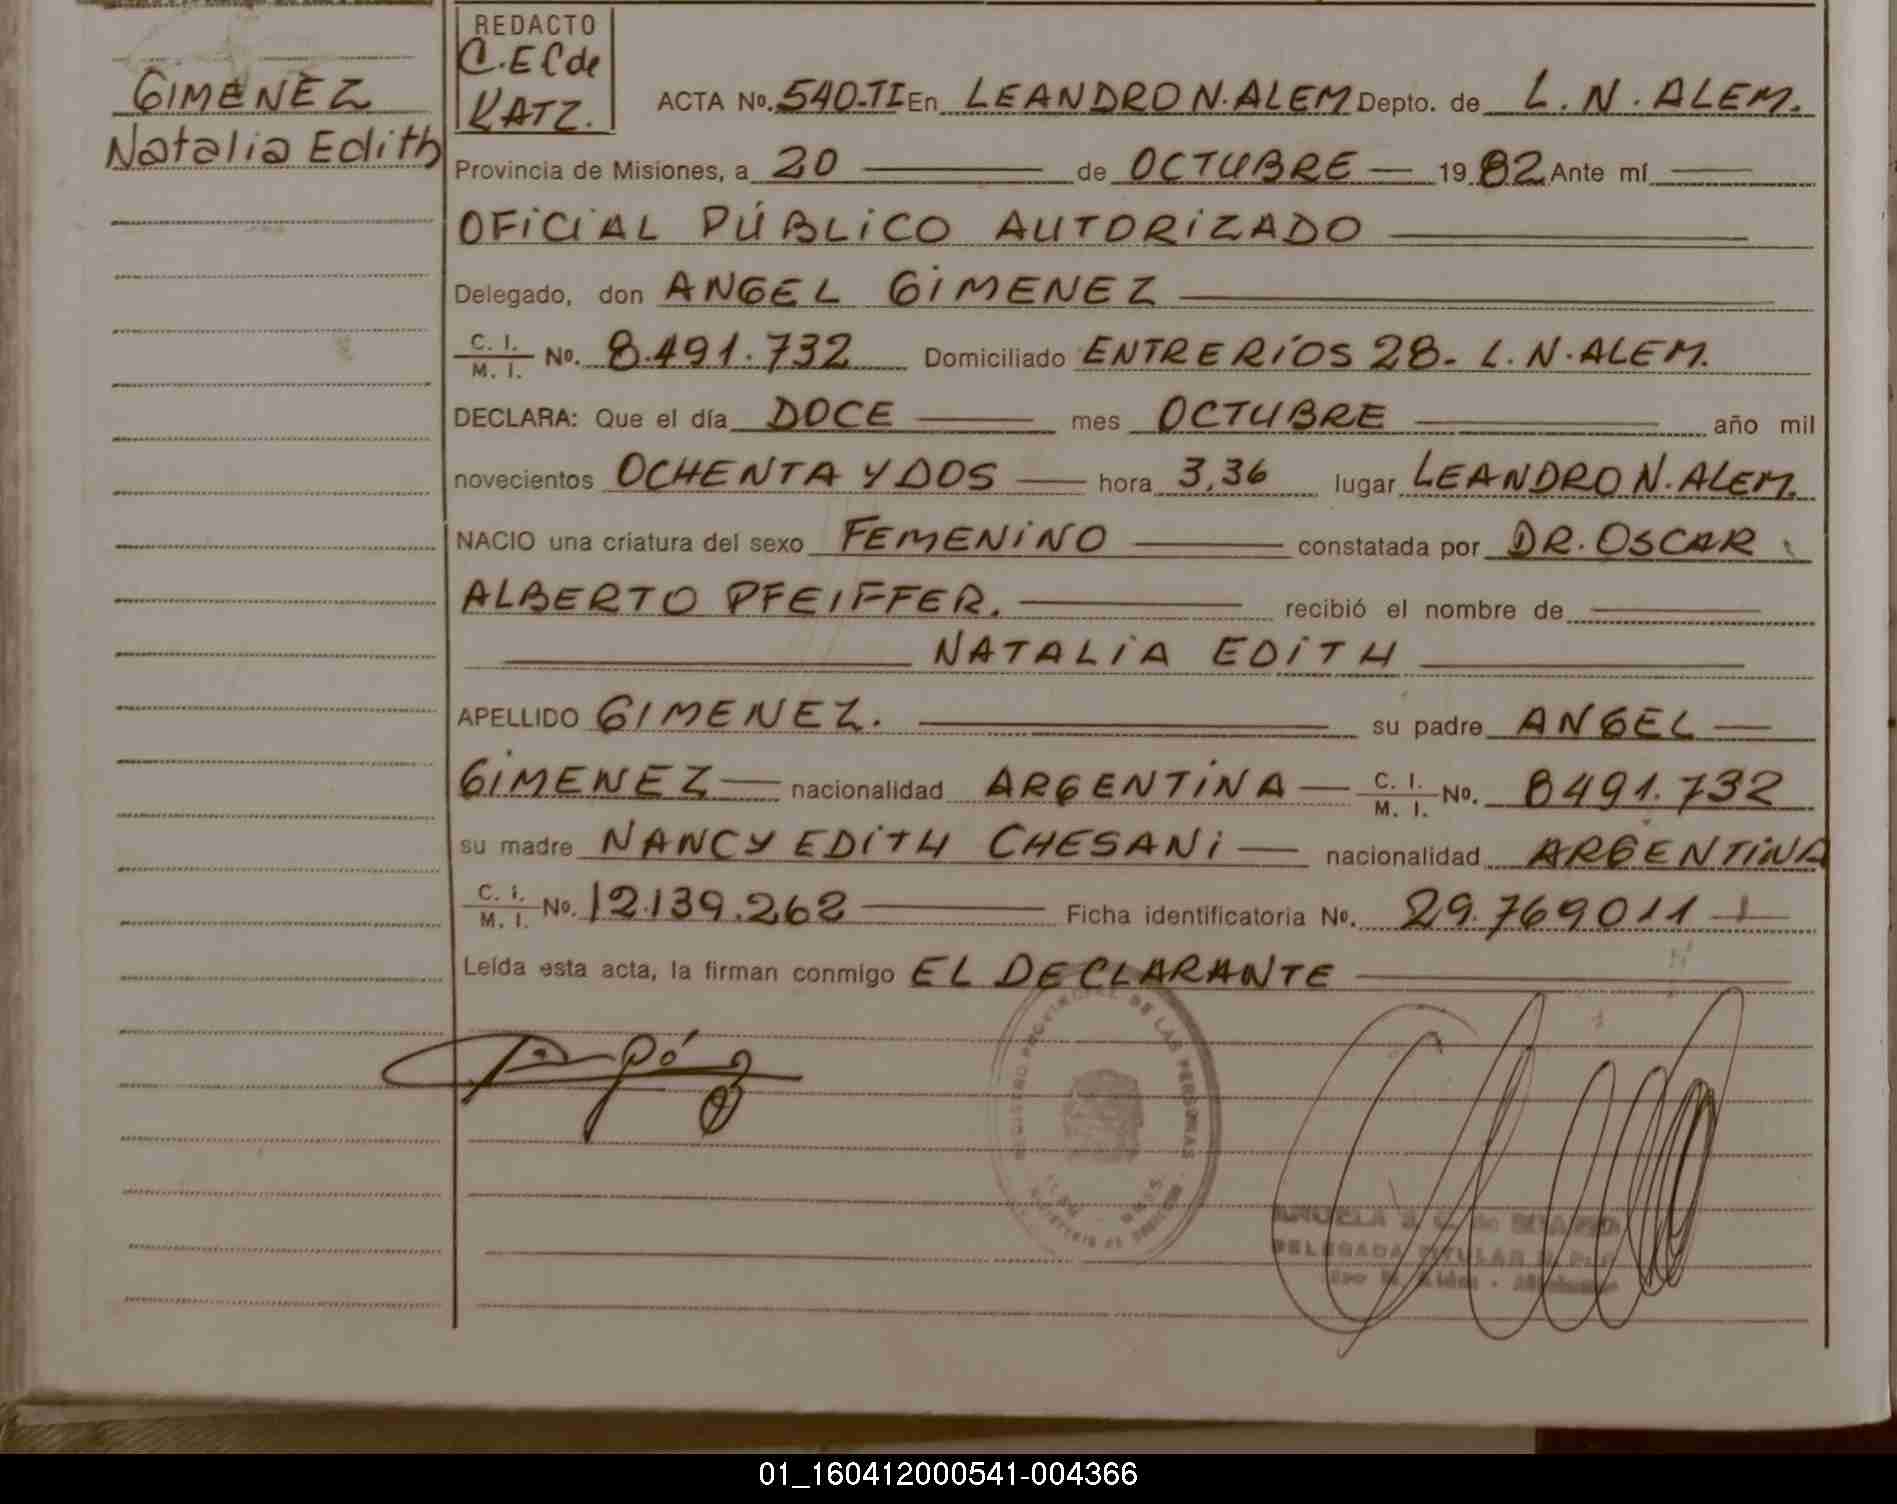 GIMENEZ
Natalia Edith
REDACTO
C.E C de
KATZ.
ACTA No. 540-TI En LEANDRO N. ALEM Depto. de L. N. ALEM.
Provincia de Misiones, a 20 de OCTUBRE 1982 Ante mí
OFICIAL PÚBLICO AUTORIZADO
Delegado, don ANGEL GIMENEZ
C. I. / M. I. No. 8.491.732 Domiciliado ENTRE RÍOS 28- L.N.ALEM.
DECLARA: Que el día DOCE mes OCTUBRE año mil
novecientos OCHENTA Y DOS hora 3,36 lugar LEANDRO N. ALEM.
NACIO una criatura del sexo FEMENINO constatada por DR. OSCAR
ALBERTO PFEIFFER. recibió el nombre de
NATALIA EDITH
APELLIDO GIMENEZ. su padre ANGEL
GIMENEZ nacionalidad ARGENTINA C. I. / M. I. No. 8491.732
su madre NANCY EDITH CHESANI nacionalidad ARGENTINA
C. I. / M. I. No. 12.139.262 Ficha identificatoria No. 29.769011
Leída esta acta, la firman conmigo EL DECLARANTE
REGISTRO PROVINCIAL DE LAS PERSONAS
DELEGADA TITULAR
01_160412000541-004366